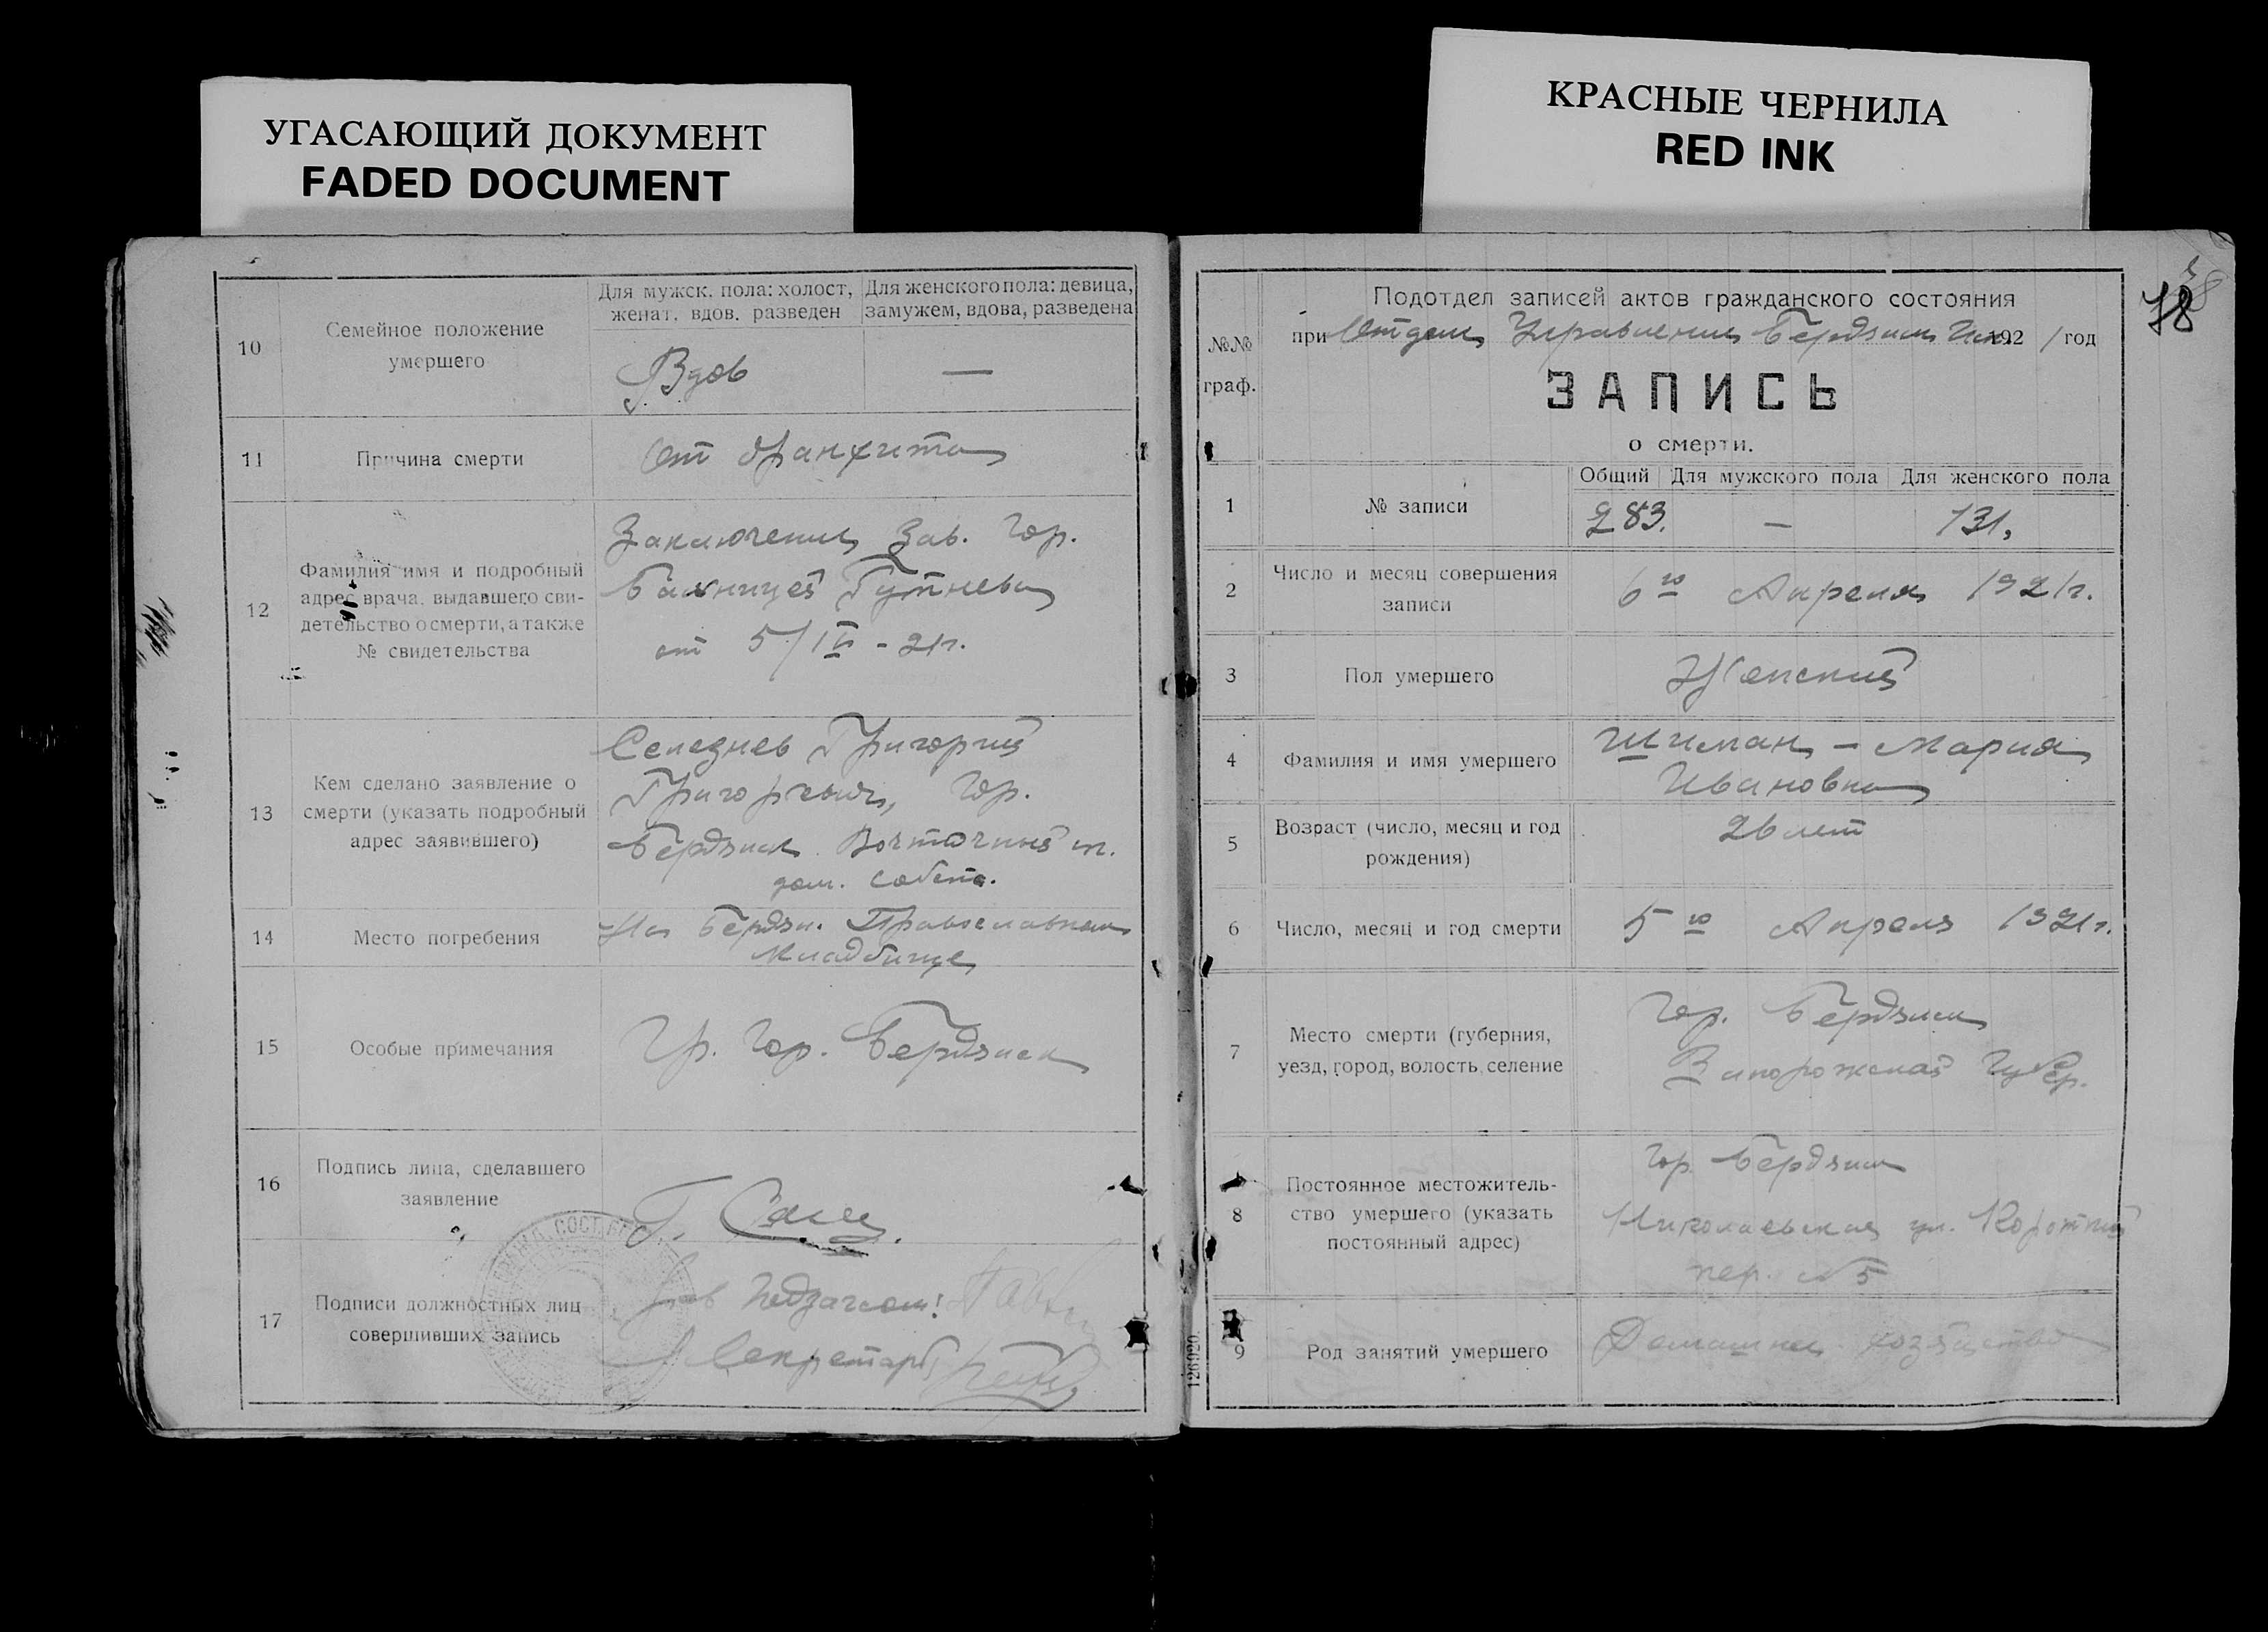 УГАСАЮЩИЙ ДОКУМЕНТ
FADED DOCUMENT
КРАСНЫЕ ЧЕРНИЛА
RED INK
10
Семейное положение
умершего
Для мужск. пола: холост,
женат, вдов, разведен
Для женского пола: девица,
замужем, вдова, разведена
Вдов
—
11
Причина смерти
От бранхита
12
Фамилия имя и подробный
адрес врача, выдавшего сви-
детельство о смерти, а также
№ свидетельства
Заключение Зав. Гор.
Бальницей Гутнева
от 5/IV - 21г.
13
Кем сделано заявление о
смерти (указать подробный
адрес заявившего)
Селезнев Григорий
Григорьевич, Гор.
Бердянск Восточный
дом. собств.
14
Место погребения
На Бердян. Православном
Кладбище
15
Особые примечания
Гр. Гор. Бердянска
16
Подпись лица, сделавшего
заявление
Г.
17
Подписи должностных лиц
совершивших запись
Зав Подзагсом!
Секретарь
78
№№
граф.
Подотдел записей актов гражданского состояния
при Отделе Управления Бердянск 1921 год
ЗАПИСЬ
о смерти.
1
№ записи
Общий
Для мужского пола
Для женского пола
283.
—
131.
2
Число и месяц совершения
записи
6го Апреля 1921г.
3
Пол умершего
Женский
4
Фамилия и имя умершего
Шиман - Мария
Ивановна
5
Возраст (число, месяц и год
рождения)
26 лет
6
Число, месяц и год смерти
5го Апреля 1921г.
7
Место смерти (губерния,
уезд, город, волость, селение
Гор. Бердянск
Запорожской Губер.
8
Постоянное местожитель-
ство умершего (указать
постоянный адрес)
Гор. Бердянск
Николаевская ул. Короткий
пер. №5
9
Род занятий умершего
Домашнее хозяйство
126020